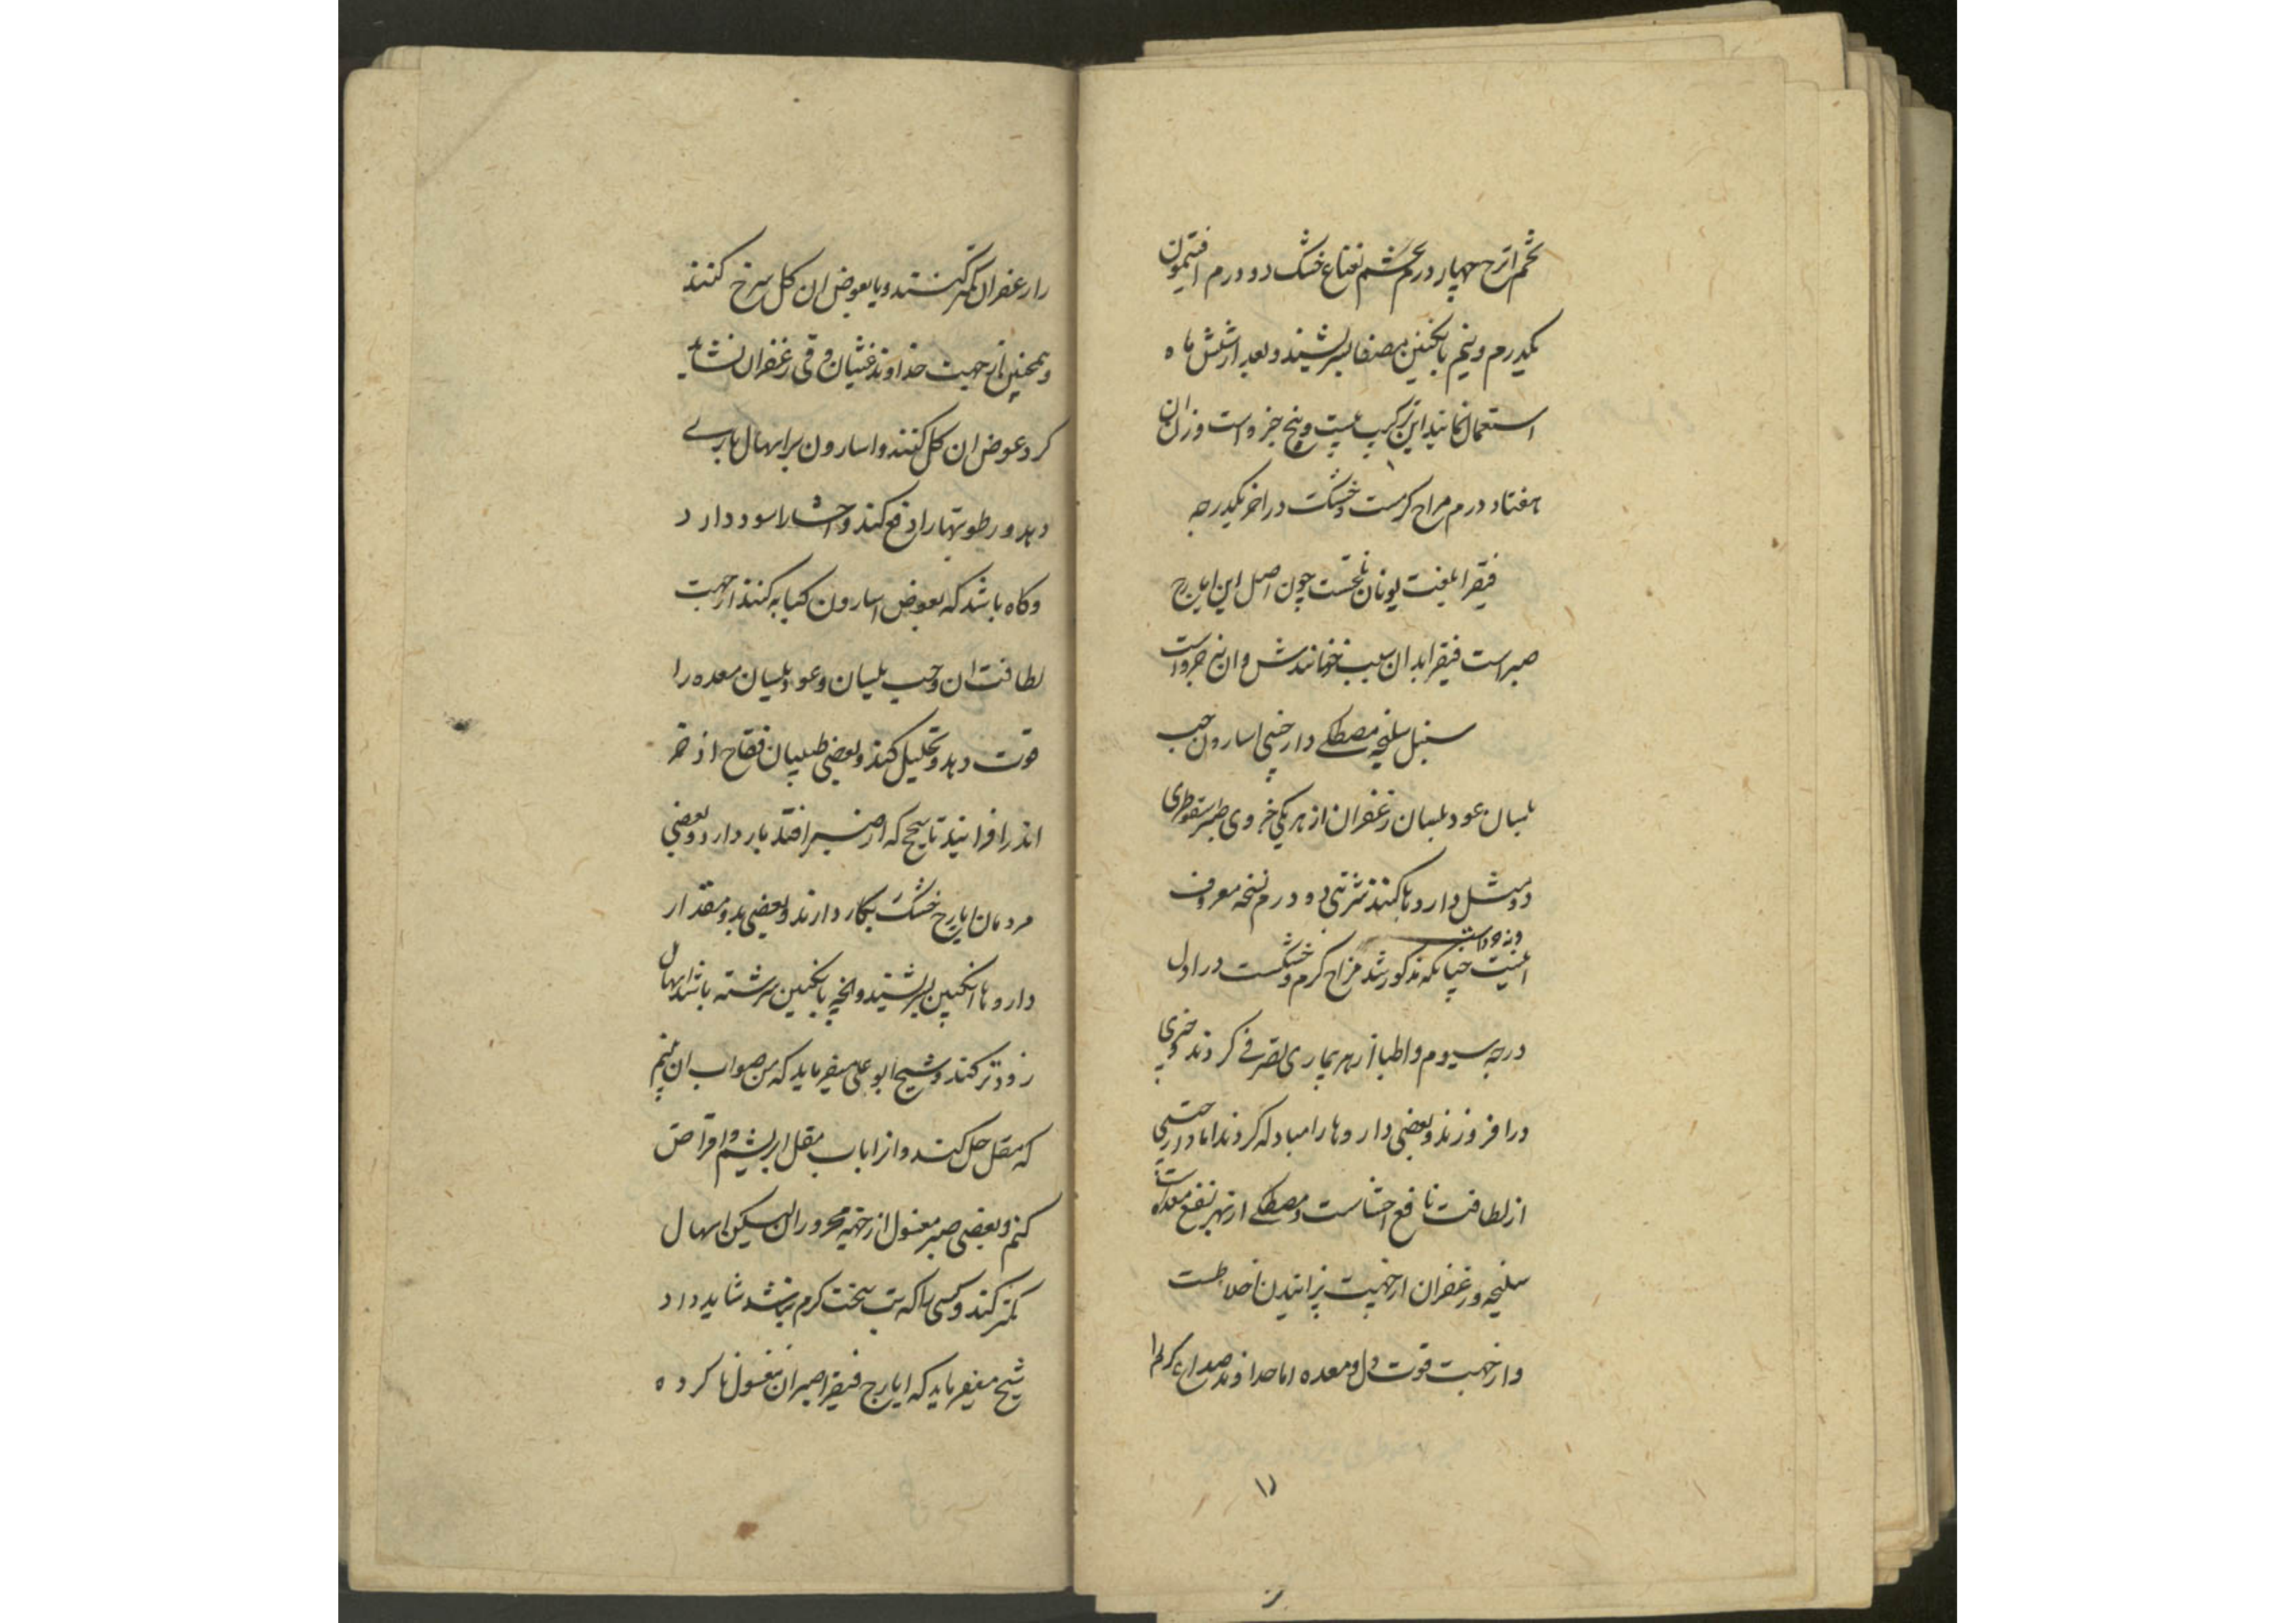 تخم اترج چهار درم نعناع خشک دو درم افتیمون
یکدرم و نیم بانکبین مصفا بسرشند و بعد از شش ماه
استعمال نمانید این ترکیب بیست و پنج جزو است وزن ان
هفتاد درم مزاج کرمست و خشکت در اخر یکدرجه
فیقرا بلغت یونان تلخست چون اصل این ایارج
صبر است فیقرا بدان سبب خوانندش و ان نه جزو است
سنبل سلیخه مصطکی دارچینی اسارون حب
بلسان عود بلسان زعفران از هر یکی جزوی صبر سقوطری
دو مثل دارو ها کنند شربتی دو درم نسخه معروف
اینست چنانکه مذکور شد مزاج کرم و خشکست در اول
درجه سیوم و اطبا از هر بیماری تصرفی کردند و چیزی
در افزوزند و بعضی دارو ها را مبادله کردند اما دارچینی
از لطافت نافع احشاست و مصطکی از بهر نفع معده است
سلیخه و زعفران از جهت پزانیدن اخلاطست
و از جهت قوت دل و معده اما خداوند صداع کرم
۱۱
را زعفران کمتر کنند و یا بعوض ان کل سرخ کنند
و همچنین از جهت خداوند غثیان و قی زعفران نشاید
کرد عوض ان کل کنند و اسارون بر اسهال یاری
دهد و رطوبتها را دفع کند و احشا را سود دارد
و کاه باشد که بعوض اسارون کبابه کنند از جهت
لطافت ان و حب بلسان و عود بلسان معده را
قوت دهد و تحلیل کند و بعضی طبیبان فقاح اذخر
اندر افزایند تا سحج که از صبر افتد باز دارد و بعضی
مردمان ایارج خشک بکار دارند و بعضی بدو مقدار
دارو ها انکبین بسرشند و انچه بانکبین سرشته باشد اسهال
زودتر کند و شیخ ابو علی میفرماید که من صواب ان بینم
که مقل حل کنند و انرا باب مقل بسرشیم و اقراص
کنم و بعضی صبر مغسول از جهة محروران لیکن اسهال
کمتر کند و کسی را که تب سخت کرم نباشد شاید داد
شیخ میفرماید که ایارج فیقرا صبر ان مغسول نا کرده